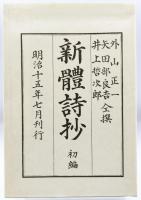 外山正一
矢田部良吉仝撰
井上哲次郎
新體詩抄 初編
明治十五年七月刊行